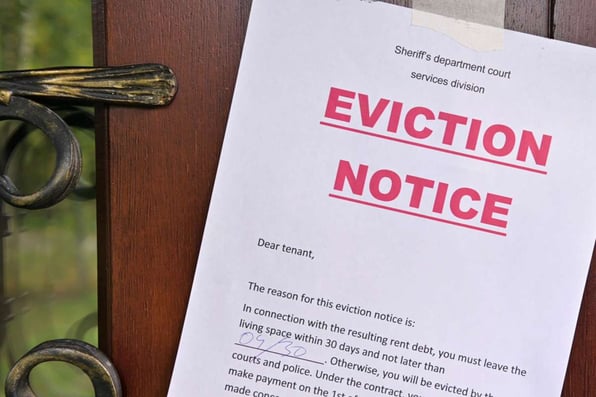 Sheriff's department court
services division
EVICTION
NOTICE
Dear tenant,
The reason for this eviction notice is:
In connection with the resulting rent debt, you must leave the
living space within 30 days and not later than
09/30. Otherwise, you will be evicted by the
courts and police. Under the contract,
make payment on the 1st of
made